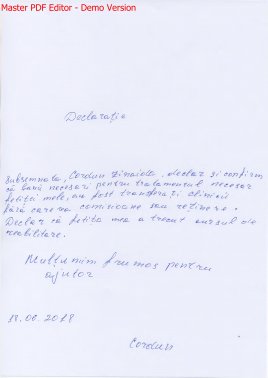 Master PDF Editor - Demo Version
Declarație
Subsemnata, Cordun Zinaida, declar și confirm
că banii necesari pentru tratamentul necesar
fetiței mele, au fost transferați clinicii
fără careva comisioane sau rețineri.
Declar că fetița mea a trecut cursul de
reabilitare.
Mulțumim frumos pentru
ajutor
18.06.2018
Cordun